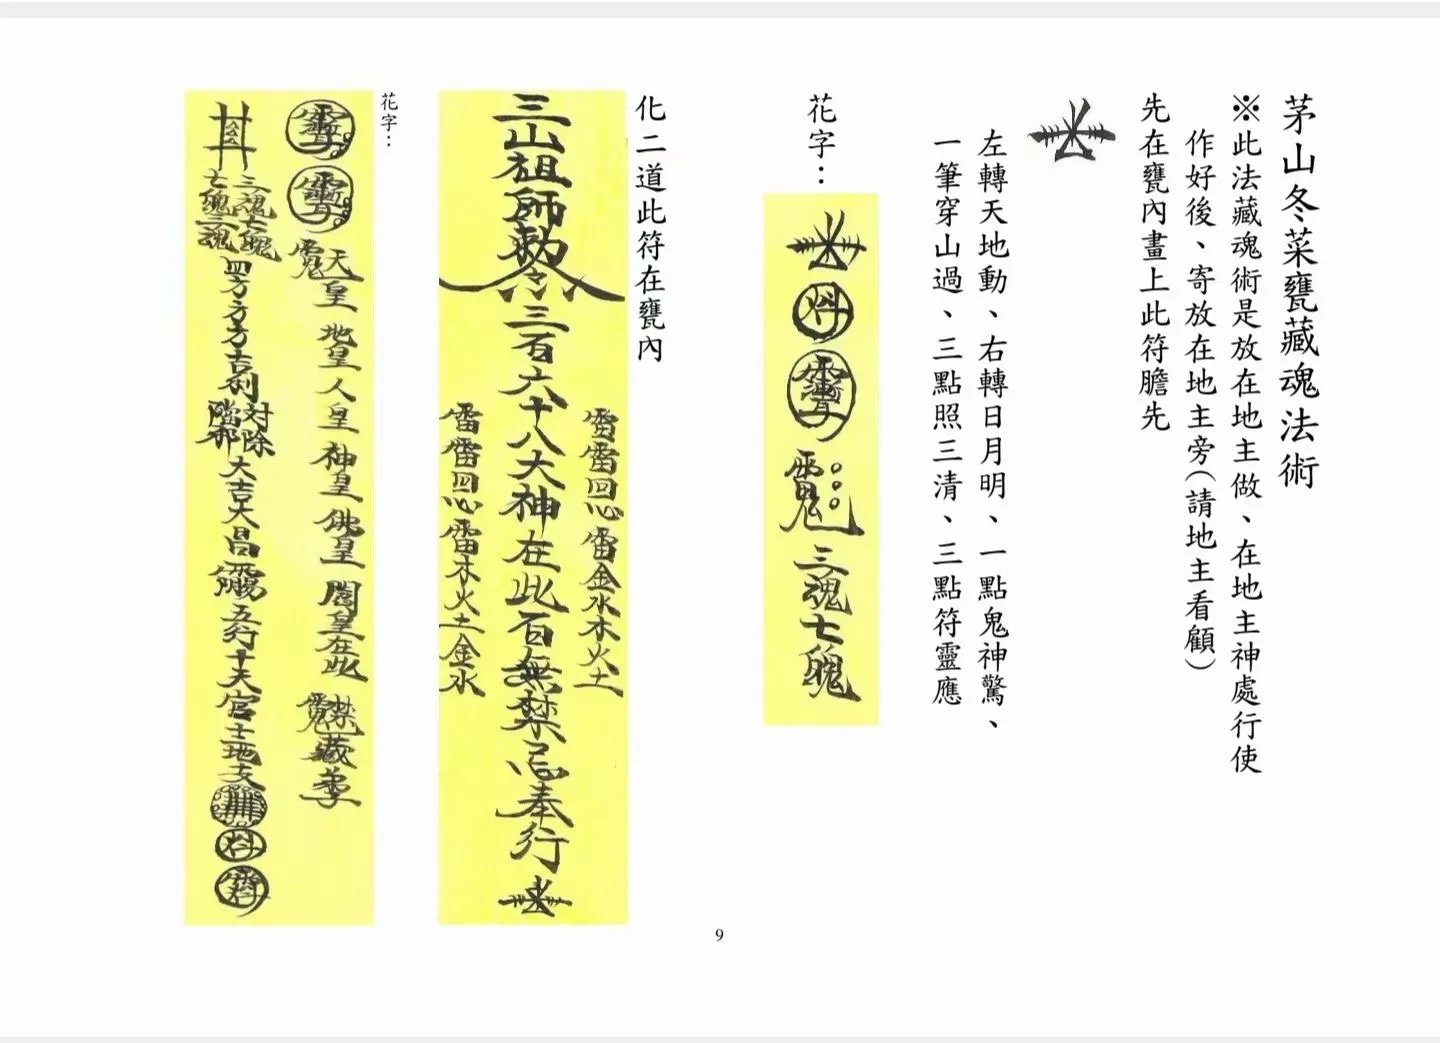 茅山冬菜甕藏魂法術
※此法藏魂術是放在地主做、在地主神處行使
作好後、寄放在地主旁(請地主看顧)
先在甕內畫上此符膽先
左轉天地動、右轉日月明、一點鬼神驚、
一筆穿山過、三點照三清、三點符靈應
花字：
三魂七魄
化二道此符在甕內
三山祖師勅令
三百六十八大神在此百無禁忌奉行
金水木火土
木火土金水
花字：
天皇 地皇 人皇 神皇 佛皇 閻皇在此
藏
三魂七魄
七魄三魂
四方方方吉利
対除
大吉大昌
五行十天官十二地支
9